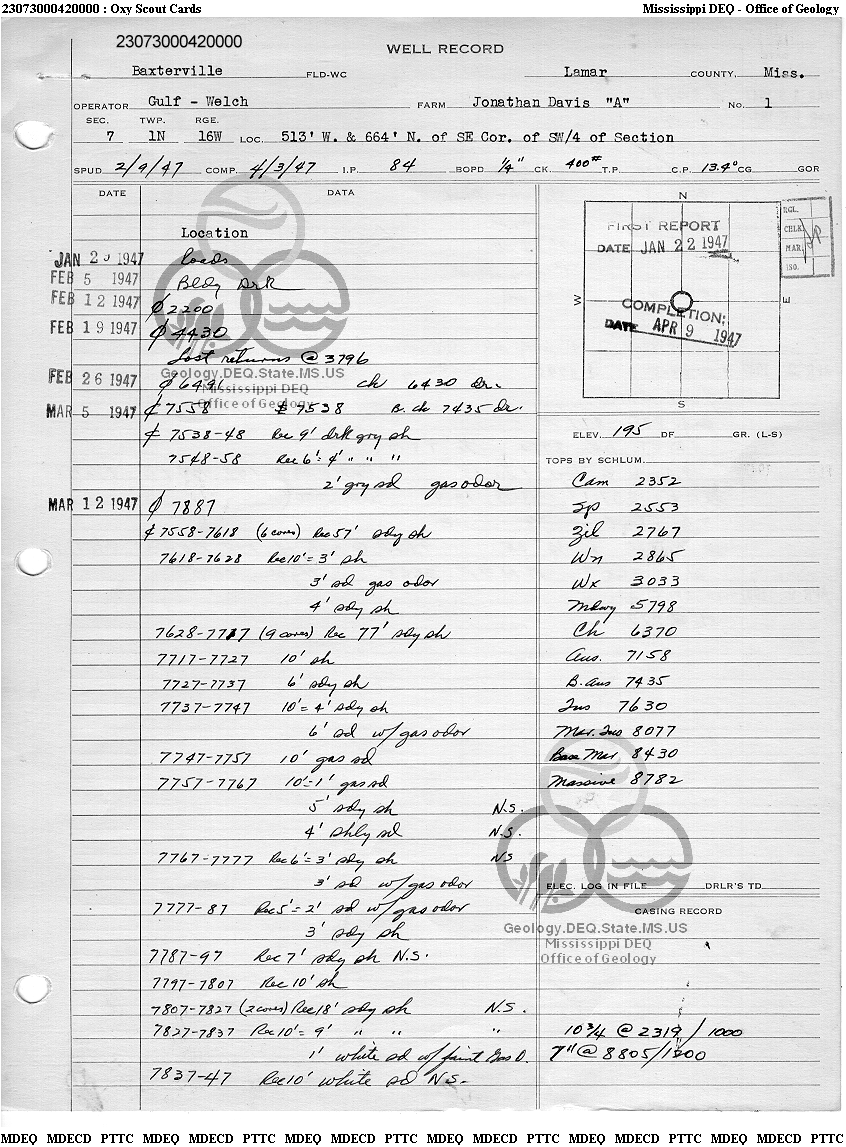 23073000420000 : Oxy Scout Cards Mississippi DEQ - Office of Geology
23073000420000
WELL RECORD
Baxterville FLD-WC Lamar COUNTY, Miss.
OPERATOR Gulf - Welch FARM Jonathan Davis "A" No. 1
SEC. TWP. RGE.
7 1N 16W LOC. 513' W. & 664' N. of SE Cor. of SW/4 of Section
SPUD 2/9/47 COMP. 4/3/47 I.P. 84 BOPD 1/4" CK. 400# T.P. C.P. 13.4° CG GOR
DATE DATA
Location
JAN 2 1947 Roads
FEB 5 1947 Bldg Drk
FEB 12 1947 ₵ 2200
FEB 19 1947 ₵ 4430
Lost returns @ 3796
FEB 26 1947 ₵ 6491 Ch 6430 dr.
MAR 5 1947 ₵ 7558 $ 7538 B. Ch 7435 dr.
₵ 7538-48 Rec 9' drk gry sh
7548-58 Rec 6'= 4' " " "
2' gry sd gas odor
MAR 12 1947 ₵ 7887
₵ 7558-7618 (6 cores) Rec 57' sdy sh
7618-7628 Rec 10' = 3' sh
3' sd gas odor
4' sdy sh
7628-7717 (9 cores) Rec 77' sdy sh
7717-7727 10' sh
7727-7737 6' sdy sh
7737-7747 10' = 4' sdy sh
6' sd w/ gas odor
7747-7757 10' gas sd
7757-7767 10'=1' gas sd
5' sdy sh N.S.
4' shly sd N.S.
7767-7777 Rec 6'= 3' sdy sh NS
3' sd w/ gas odor
7777-87 Rec 5' = 2' sd w/ gas odor
3' sdy sh
7787-97 Rec 7' sdy sh N.S.
7797-7807 Rec 10' sh
7807-7827 (2 cores) Rec 18' sdy sh N.S.
7827-7837 Rec 10' = 9' " " "
1' white sd w/ faint Gas O.
7837-47 Rec 10' white sd N.S.
N
W
E
S
FIRST REPORT
DATE JAN 22 1947
COMPLETION:
DATE APR 9 1947
RGL.
CHLK
MAR.
ISO.
ELEV. 195 DF GR. (L-S)
TOPS BY SCHLUM.
Cam 2352
Sp 2553
Zil 2767
Wn 2865
Wx 3033
Mdwy 5798
Ch 6370
Aus. 7158
B. Aus 7435
Tus 7630
Mar. Tus 8077
Base Mar. 8430
Massive 8782
ELEC. LOG IN FILE DRLR'S TD
CASING RECORD
10 3/4 @ 2319 / 1000
7" @ 8805/1200
Geology.DEQ.State.MS.US
Mississippi DEQ
Office of Geology
Geology.DEQ.State.MS.US
Mississippi DEQ
Office of Geology
MDEQ MDECD PTTC MDEQ MDECD PTTC MDEQ MDECD PTTC MDEQ MDECD PTTC MDEQ MDECD PTTC MDEQ MDECD PTTC